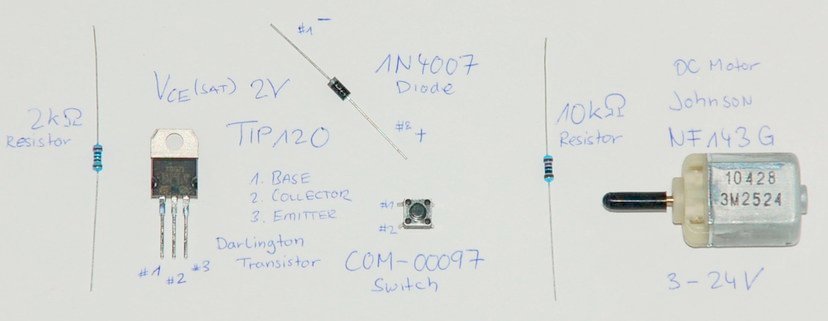 2kΩ
Resistor
VCE(SAT) 2V
TIP120
1. BASE
2. COLLECTOR
3. EMITTER
Darlington
Transistor
#1
#2
#3
#1 -
1N4007
Diode
#2 +
#1
#2
COM-00097
Switch
10kΩ
Resistor
DC Motor
Johnson
NF143G
10428
3M2524
3-24V